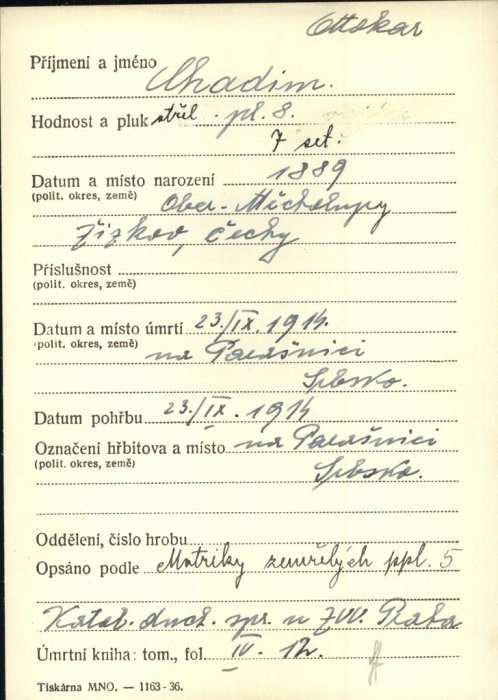 Ottokar
Příjmení a jméno Chadim.
Hodnost a pluk střel. pl. 8.
7 set.
Datum a místo narození 1889
(polit. okres, země) Ober-Měcholupy
Žižkov, Čechy
Příslušnost
(polit. okres, země)
Datum a místo úmrtí 23./IX. 1914.
(polit. okres, země) na Parašnici
Srbsko.
Datum pohřbu 23./IX. 1914
Označení hřbitova a místo na Parašnici
(polit. okres, země) Srbsko.
Oddělení, číslo hrobu
Opsáno podle Matriky zemřelých ppl. 5
Katol. duch. spr. u ZVV. Praha
Úmrtní kniha: tom., fol. IV. 12.
Tiskárna MNO. — 1163-36.